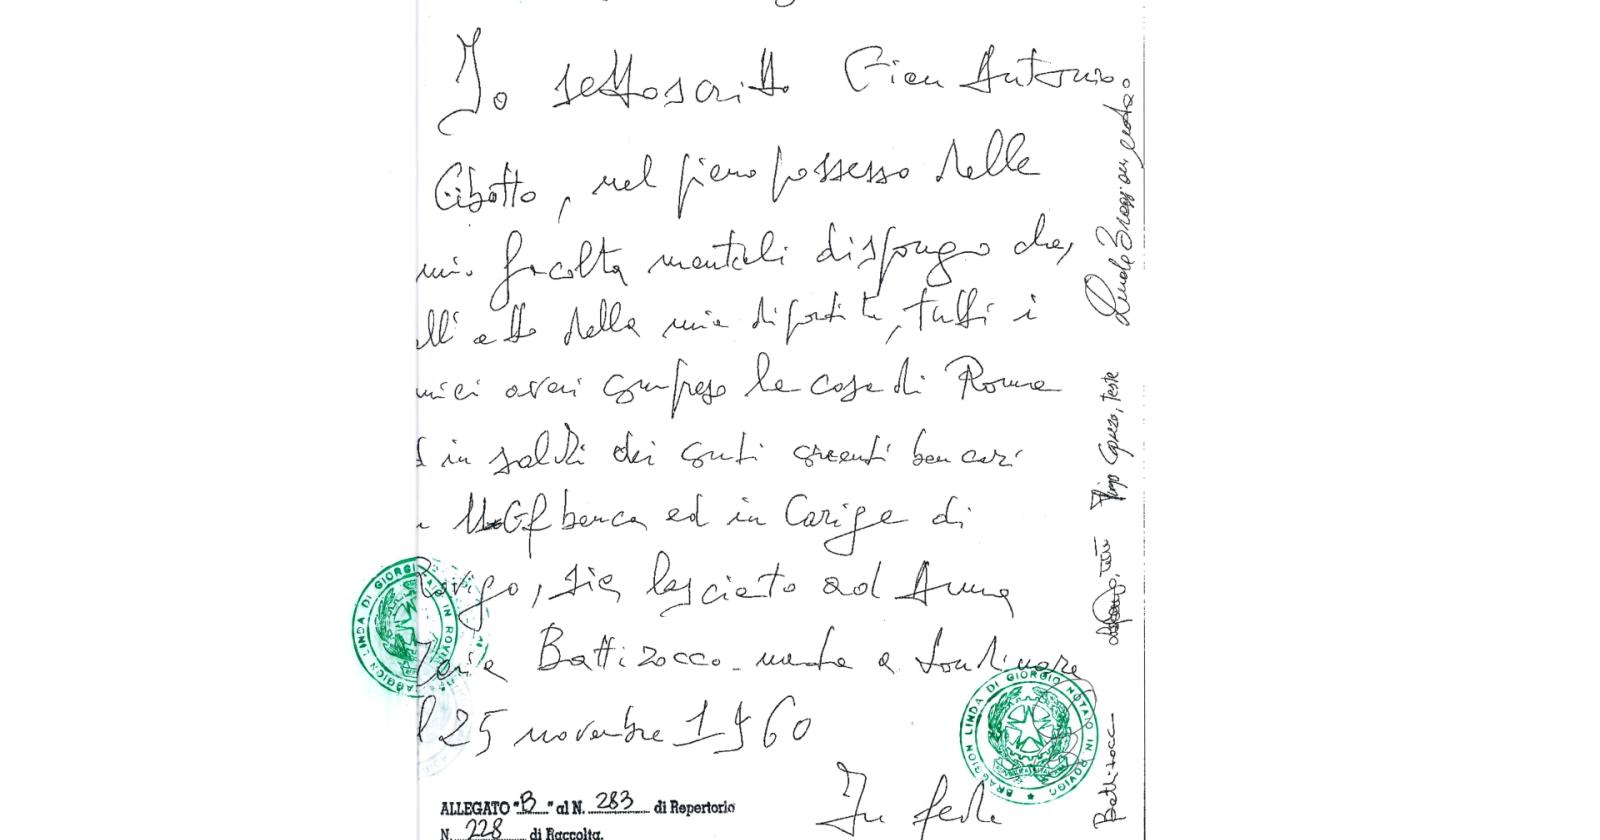 Io sottoscritto Gian Antonio
Cibotto, nel pieno possesso delle
mie facoltà mentali dispongo che,
all'atto della mia dipartita, tutti i
miei averi compreso la casa di Roma
ed in saldi dei conti correnti bancari
banca ed in Carige di
Rovigo, sia lasciato ad Anna
Maria Battizocco nata a
il 25 novembre 1960
In fede
ALLEGATO "B" al N. 283 di Repertorio
N. 228 di Raccolta.
BRAGGION LINDA DI GIORGIO NOTAIO IN ROVIGO
BRAGGION LINDA DI GIORGIO NOTAIO IN ROVIGO
teste
Battizocc